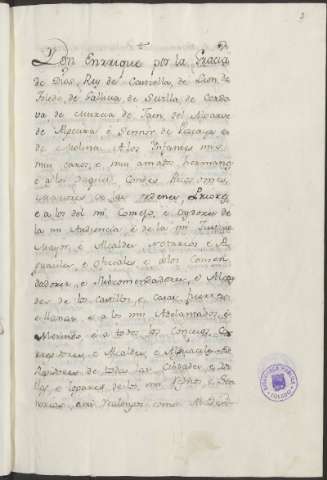 2
Don Enrrique por la Gracia
de Dios, Rey de Castilla, de Leon, de
Toledo, de Gallicia, de Sevilla, de Cordo
va, de Murcia, de Jaen, del Algarve
de Algecira, è Sennor de Vizcaya, è de
de Molina. A los Infantes mis
muy caros, e muy amados hermanos
è a los Duques, Condes, Ricos omes,
Maestres de las ordenes, Priores
e a los del mi Consejo, e Oydores de
la mi Audiencia è de la mi Justicia
Mayor, e Alcaldes, Notarios e A
guaciles, e oficiales e a los Comen
dadores, e Subcomendadores, e Alcay
des de los castillos, e casas fuertes
e llanas, e a los mis Adelantados, e
Merinos, e a todos los Concejos, Co
rregidores, e Alcaldes, e Alguaciles
Regidores de todas las Cibdades, e Vi
llas, e logares de los mis Regnos, e Sen
norios, ansi Realengos como Abaden
BIBLIOTECA PUBLICA
TOLEDO